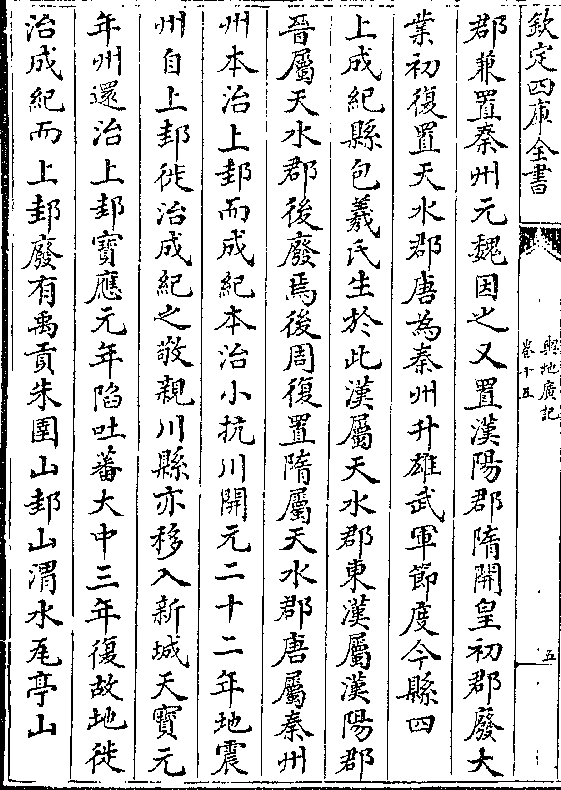 欽定四庫全書
輿地廣記
卷十五
五
郡兼置秦州元魏因之又置漢陽郡隋開皇初郡廢大
業初復置天水郡唐為秦州升雄武軍節度今縣四
上成紀縣包羲氏生於此漢屬天水郡東漢屬漢陽郡
晉屬天水郡後廢焉後周復置隋屬天水郡唐屬秦州
州本治上邽而成紀本治小抗川開元二十二年地震
州自上邽徙治成紀之敬親川縣亦移入新城天寶元
年州還治上邽寶應元年陷吐蕃大中三年復故地徙
治成紀而上邽廢有禹貢朱圉山邽山渭水瓦亭山